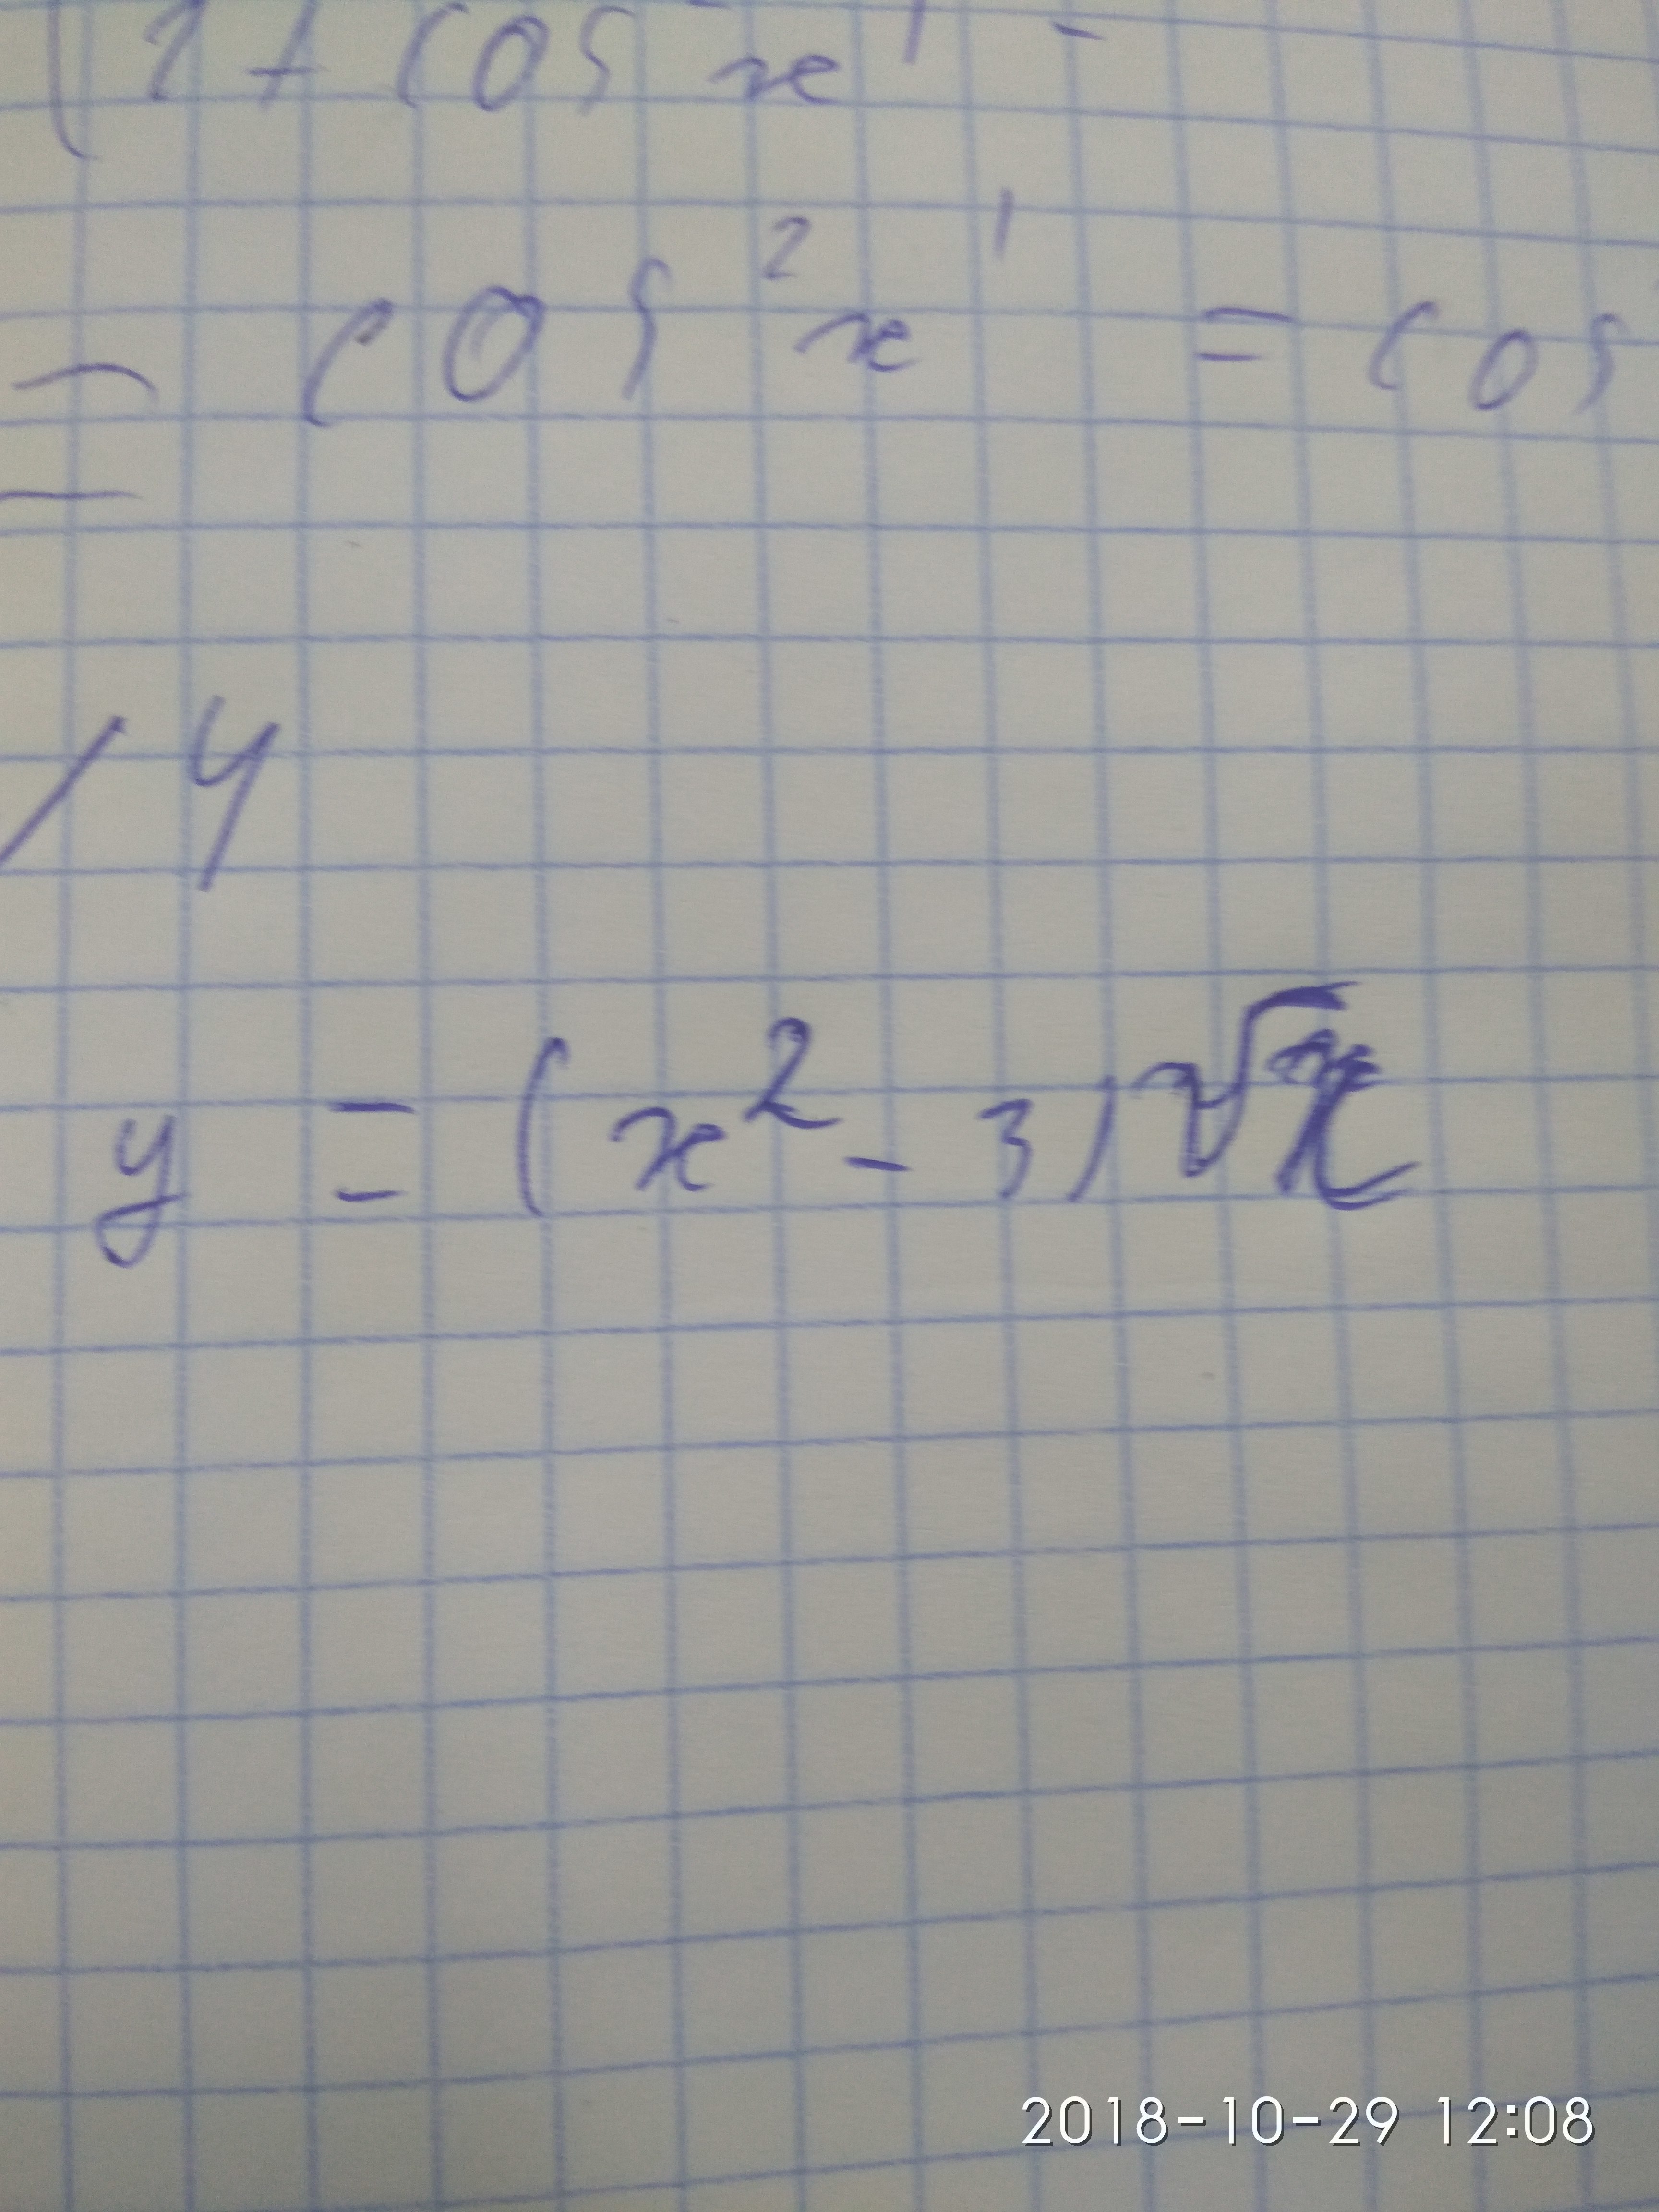 (1 + cos x' -
= cos² x' = cos
/ 4
y = (x² - 3) √x
2018-10-29 12:08